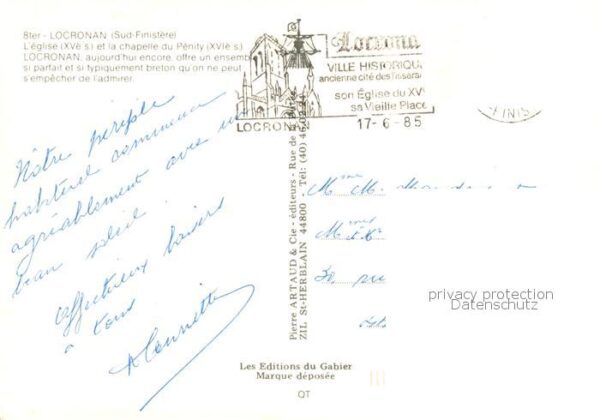 8ter - LOCRONAN (Sud-Finistère)
L'église (XVIè s.) et la chapelle du Pénity (XVIè s.)
LOCRONAN, aujourd'hui encore, offre un ensemb
si parfait et si typiquement breton qu'on ne peut
s'empêcher de l'admirer.
Locrona
VILLE HISTORIQU
ancienne cité des Tisseran
son Église du XVᵉ
sa Vieille Place
LOCRONAN
17-6-85
FINIS
Notre périple
habituel commence
agréablement avec un
beau soleil
Affectueux baisers
à tous
Pierre ARTAUD & Cie - éditeurs - Rue de
ZIL St-HERBLAIN 44800 - Tél: (40) 46.02.24
Mme M.
30,
privacy protection
Datenschutz
Les Editions du Gabier
Marque déposée
QT